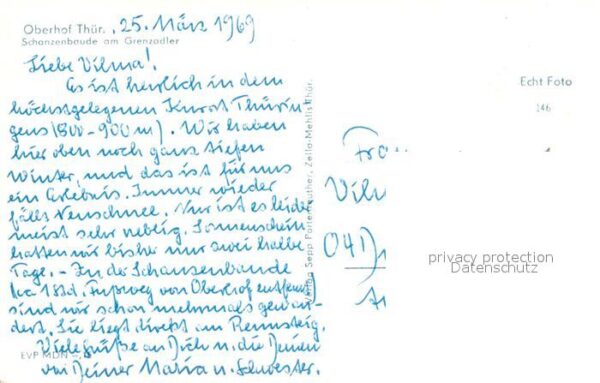 Oberhof Thür., 25. März 1969
Schanzenbaude am Grenzadler
Liebe Vilma!
Es ist herrlich in dem
höchstgelegenen Kurort Thürin
gens (800-900 m). Wir haben
hier oben noch ganz tiefen
Winter, und das ist für uns
ein Erlebnis. Immer wieder
fällt Neuschnee. Nur ist es leider
meist sehr neblig. Sonnenschein
hatten wir bisher nur zwei halbe
Tage. - In der Schanzenbaude
(ca 1 Std. Fußweg von Oberhof entfernt)
sind wir schon mehrmals gewan-
dert. Sie liegt direkt am Rennsteig.
Viele Grüße an Dich u. die Deinen
von Deiner Maria u. Schwester.
EVP MDN
Sepp Zella-Mehlis Thür.
Echt Foto
146
Fra
Viln
privacy protection
Datenschutz